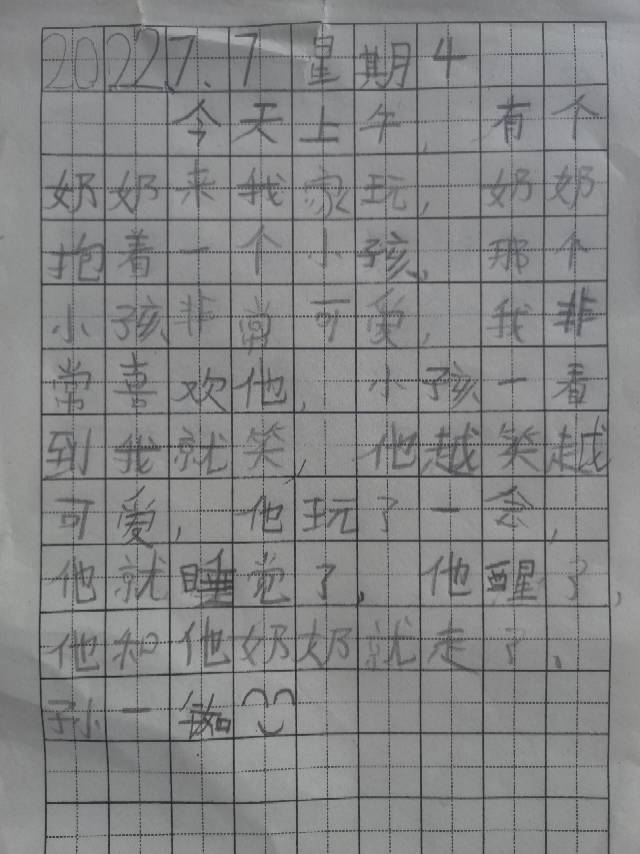 2022 7.7 星期4
今天上午，有个
奶奶来我家玩，奶奶
抱着一个小孩，那个
小孩非常可爱，我非
常喜欢他，小孩一看
到我就笑，他越笑越
可爱，他玩了一会，
他就睡觉了，他醒了，
他和他奶奶就走了、
孙一